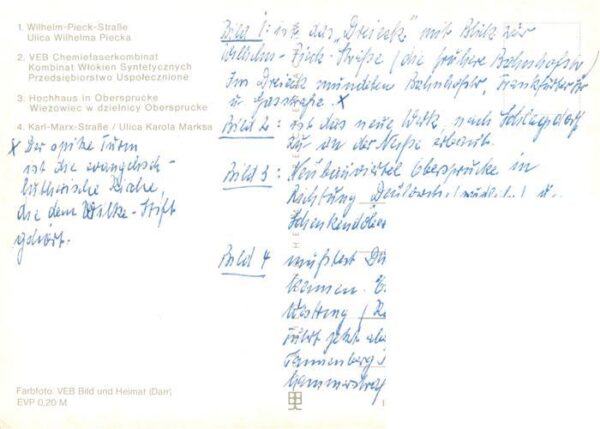 1. Wilhelm-Pieck-Straße
Ulica Wilhelma Piecka
2. VEB Chemiefaserkombinat
Kombinat Włókien Syntetycznych
Przedsiębiorstwo Uspołecznione
3. Hochhaus in Obersprucke
Wieżowiec w dzielnicy Obersprucke
4. Karl-Marx-Straße / Ulica Karola Marksa
x Der spitze Turm
ist die evangelisch-
lutherische Kirche,
die dem Wilke-Stift
gehört.
Farbfoto: VEB Bild und Heimat (Darr)
EVP 0,20 M
Bild 1: ist das „Dreieck" mit Blick zur
Wilhelm-Pieck-Straße / (die frühere Bahnhofstr
Im Dreieck mündeten Bahnhofstr, Frankfurterstr
u Gasstraße. x
Bild 2: ist das neue Werk, nach Schlagsdorf
zu an der Neiße erbaut.
Bild 3: Neubauviertel Obersprucke in
Richtung
Schenkendöber
Bild 4 mußtest Du
kennen.
führt jetzt
Tannenberg